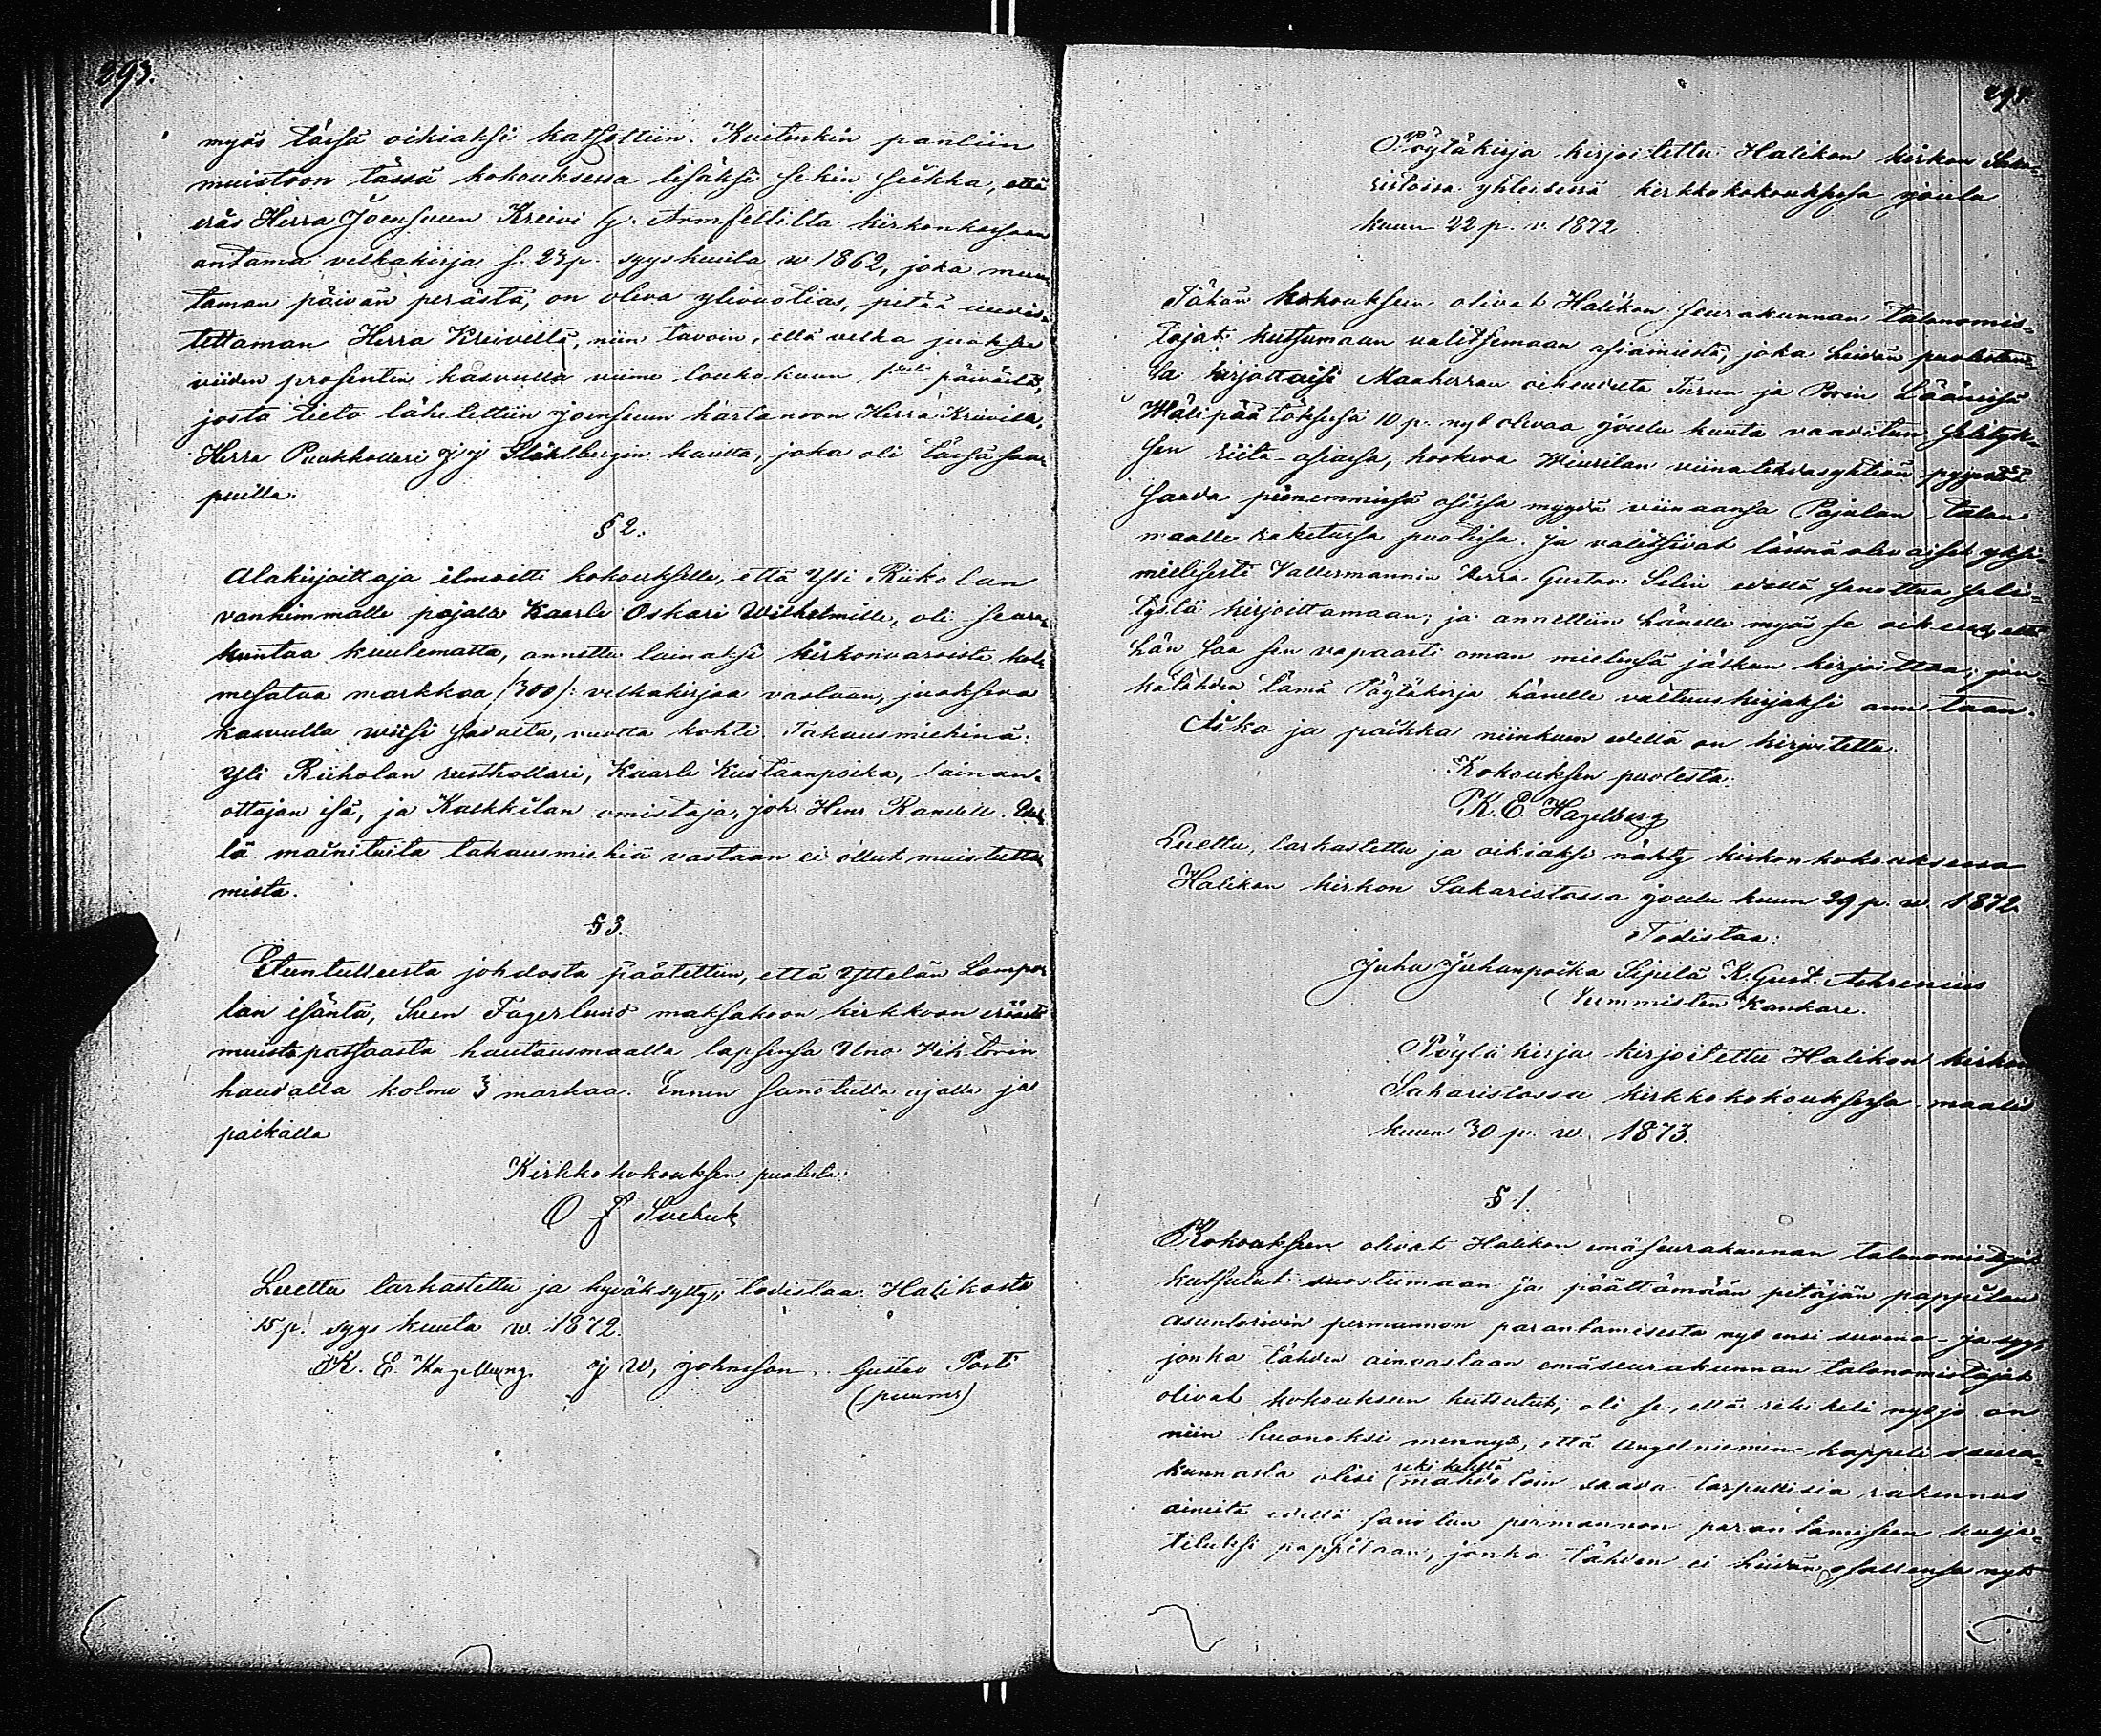 293.
myös täsä oikiaksi katsottiin. Kuitenkin pantiin
muistoon tässä kokouksessa lisäksi sekin seikka, että
eräs Herra Joensuun Kreivi G. Armfeltilta kirkonkassaan
antama velkakirja s. 23 p. syyskuuta w 1862, joka muu-
taman päivän perästä, on oleva ylivuotias, pitää uudis-
tettaman Herra Kreivillä, niin tavoin, että velka juoksee
viiden prosentin kasvulla viime loukokuun 1 päivästä,
josta tieto lähetettiin Joensuun kartanoon Herra Kreiville,
Herra Puukhollari J J Ståhlbergin kautta, joka oli täsä saa-
puilla.
§ 2.
Alakirjoittaja ilmoitti kokoukselle, että Yli Riikolan
vanhimmalle pojalle Kaarle Oskari Wilhelmille, oli seura-
kuntaa kuulematta, annettu lainaksi kirkonvaroista kol-
mesataa markkaa (300): velkakirjaa vastaan, juokseva
kasvulla wiisi sadalta, vuotta kohti. Takausmiehinä:
Yli Riikolan rusthollari, Kaarle Kustaanpoika, lainan-
ottajan isä, ja Kalkkilan omistaja, Joh. Henr. Randell. Edel-
lä mainituita takausmiehiä vastaan ei ollut muistutta-
mista.
§ 3.
Etuntulleesta johdosta päätettiin, että Yttelän Lampo-
lan isäntä, Sven Fagerlund maksakoon kirkkoon eräästä
muistopatsaasta hautausmaalla lapsensa Uno Viktorin
haudalla kolme 3 markaa. Ennen sanotulla ajalla ja
paikalla
Kirkkokokouksen puolesta:
O F
Luettu tarkastettu ja hyväksytty, todistaa: Halikosta
15 p. syys kuuta w. 1872.
K. E. Hagelberg. J. W. Johnsson. Gustav Posti
(puumr)
294.
Pöytäkirja kirjoitettu Halikon kirkon Saka-
ristossa yhteisessä kirkkokokouksesa joulu
kuun 22 p. v. 1872
Tähän kokouksen olivat Halikon seurakunnan talonomis-
tajat kutsumaan valitsemaan asiamiestä, joka heidän puolestan-
sa kirjottaisi Maaherran oikeudelta Turun ja Porin Läänissä
Wälipäätöksesä 10 p. nyt olevaa joulu kuuta vaaditun selityk-
sen riita-asiassa, koskeva Wiurilan viinatehdasyhtiön pyyntöä
saada pienemmissä osissa myydä viinaansa Pajulan talon
maalle raketussa puotissa. Ja valitsivat läsnä olevaiset yksi-
mielisesti Valtermannin Herra Gustav Selin edellä sanottua seli-
tystä kirjoittamaan, ja annettiin hänelle myös se oikeus, että
hän saa sen vapaasti oman mielensä jäskun kirjoittaa; jon-
kätähden tämä Pöytäkirja hänelle valtuuskirjaksi annetaan.
Aika ja paikka niinkuun edellä on kirjoitettu.
Kokouksen puolesta:
K. E. Hagelberg
Luettu, tarkastettu ja oikiaksi nähty kirkonkokouksessa
Halikon kirkon Sakaristossa joulu kuun 29 p. w. 1872.
Todistaa:
Juha Juhanpoika Sipilä K. Gust. Ahrenius
Nummisten Kankare.
Pöytä kirja kirjoitettu Halikon kirkon
Sakaristossa kirkkokokouksessa maalis
kuun 30 p. w. 1873.
§ 1.
Kokouksen olivat Halikon emäseurakunnan talonomistajat
kutsutut suostumaan ja päättämään pitäjän pappilan
asuntorivin permannon parantamisesta nyt ensi suvena - ja syy,
jonka tähden ainoastaan emäseurakunnan talonomistajat
olivat kokouksen kutsutut, oli se, että reki keli nytjo on
niin huonoksi mennyt, että Angelniemen kappeli seura-
kunnasta olisi (mahdotoin saada tarpullisia rakennus
reki kelillä
aineita edellä sanotun permannon parantamiseen kulje-
teluksi pappilaan, jonka tähden ei heidän osallensa nyt